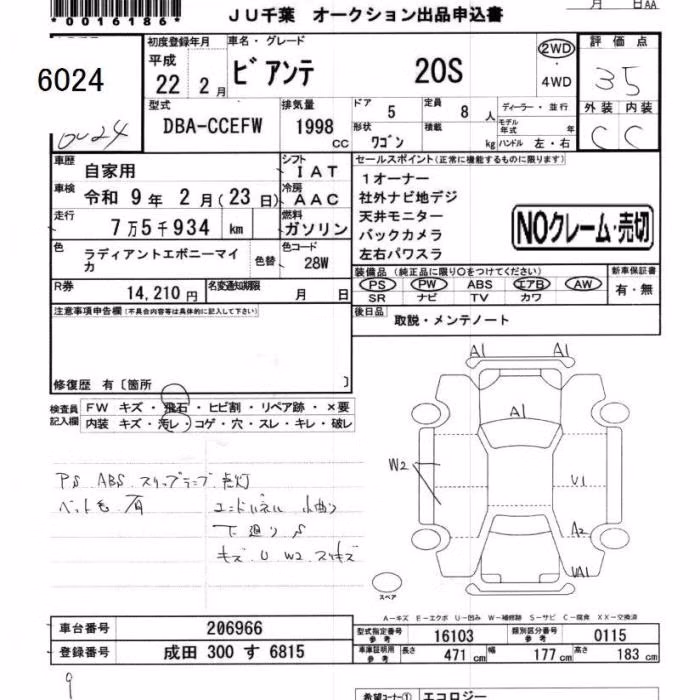 *0016186*
JU千葉 オークション出品申込書
月 日AA
6024
0024
初度登録年月
平成
22 2月
車名・グレード
ビアンテ 20S
2WD
・
4WD
評価点
35
外装 内装
C C
型式
DBA-CCEFW
排気量
1998 CC
ドア
5
定員
8 人
ディーラー・並行
形状
ワゴン
積載
kg
モデル年式 年
ハンドル 左・右
車歴
自家用
シフト
IAT
車検
令和 9年 2月(23日)
冷房
AAC
走行
7万5千934 km
燃料
ガソリン
色
ラディアントエボニーマイカ
色替
色コード
28W
R券
14,210円
名変通知期限
月 日
セールスポイント(正常に機能するものに限ります)
1オーナー
社外ナビ地デジ
天井モニター
バックカメラ
左右パワスラ
NOクレーム・売切
装備品 (純正品に限り○をつけてください)
PS PW ABS エアB AW
SR ナビ TV カワ
新車保証書
有・無
後日品
取説・メンテノート
注意事項申告欄 (不具合内容等は具体的に記入して下さい)
修復歴 有〔箇所 〕
検査員記入欄
FW キズ・飛石・ヒビ割・リペア跡・×要
内装 キズ・汚レ・コゲ・穴・スレ・キレ・破レ
PS ABS スリップランプ 点灯
ペット毛 有
エンドパネル 小曲り
下廻り S
キズ U W2 スリキズ
A1 A1
A1
W2
U1
A2
UA1
スペア
A－キズ E－エクボ U－凹み W－補修跡 S－サビ C－腐食 XX－交換済
車台番号
206966
登録番号
成田 300 す 6815
型式指定番号 参考
16103
類別区分番号 参考
0115
車庫証明用 参考
長さ 471 cm
幅 177 cm
高さ 183 cm
9
希望コーナー① エコロジー